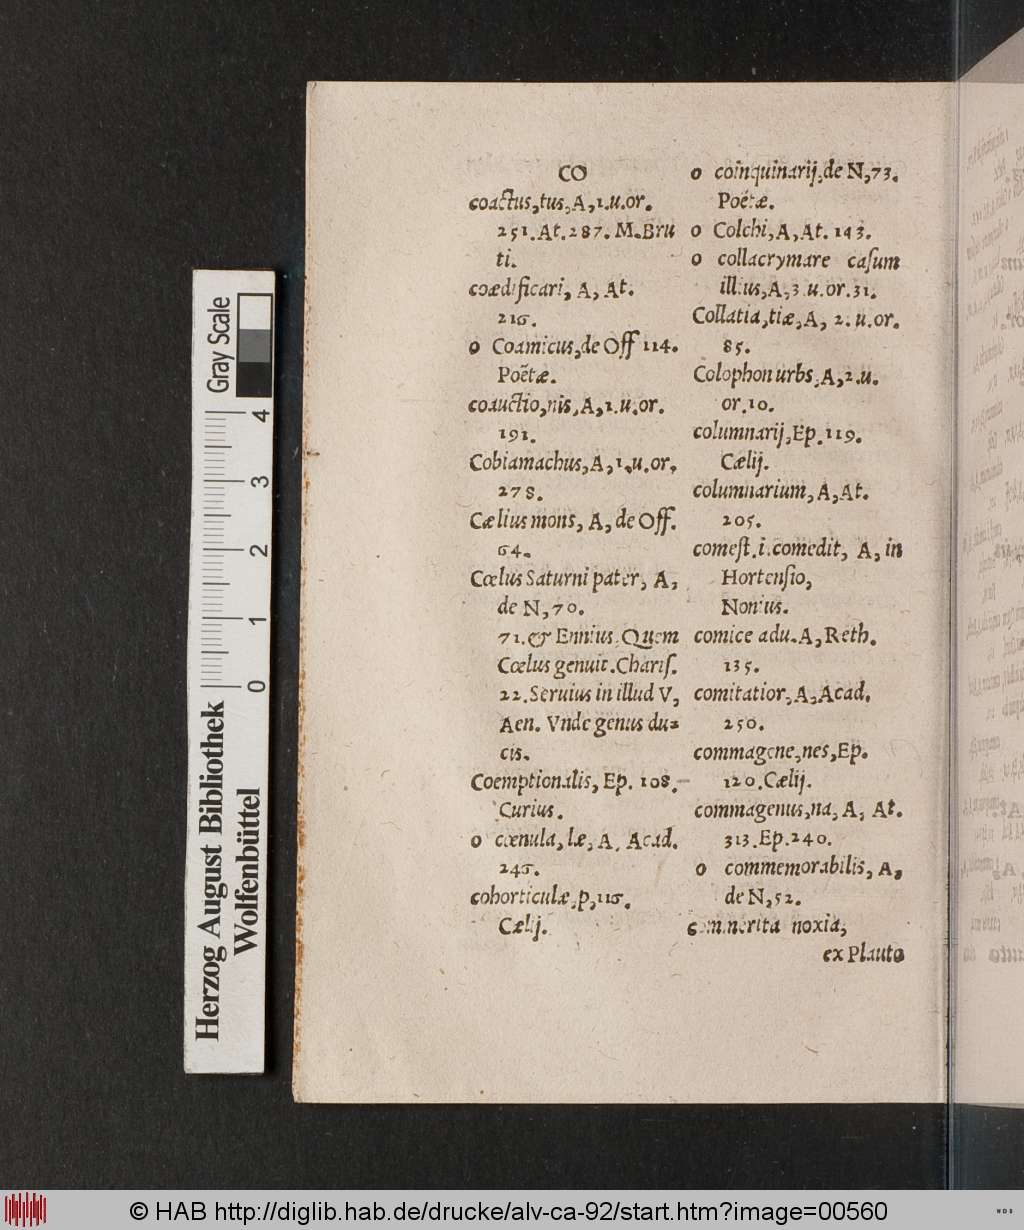 CO
coactus,tus,A,1.u.or.
251.At.287. M.Bru
ti.
coædificari, A, At.
216.
o Coamicus,de Off 114.
Poëtæ.
coauctio,nis,A,1.u.or.
191.
Cobiamachus,A,1.u.or.
278.
Cælius mons, A, de Off.
64.
Cœlus Saturni pater, A,
de N,70.
71.& Ennius.Quem
Cœlus genuit.Chariſ.
22.Seruius in illud V,
Aen. Vnde genus du=
cis.
Coemptionalis, Ep. 108.
Curius.
o cœnula, læ, A, Acad.
246.
cohorticulæ,p,116.
Cælij.
o coinquinarij,de N,73.
Poëtæ.
o Colchi,A,At.143.
o collacrymare caſum
illius,A,3.u.or.31.
Collatia,tiæ,A, 2.u.or.
85.
Colophon urbs,A,2.u.
or.10.
columnarij,Ep.119.
Cælij.
columnarium,A,At.
205.
comeſt.i.comedit, A, in
Hortenſio,
Nonius.
comice adu.A,Reth.
135.
comitatior,A,Acad.
250.
commagene,nes,Ep.
120.Cælij.
commagenus,na, A, At.
313.Ep.240.
o commemorabilis, A,
de N,52.
commerita noxia,
ex Plauto
Gray Scale
4
3
2
1
0
Herzog August Bibliothek
Wolfenbüttel
© HAB http://diglib.hab.de/drucke/alv-ca-92/start.htm?image=00560